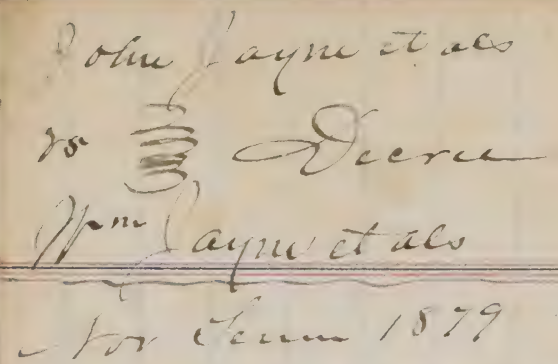 John Jayne et als
vs Decree
Wm Jayne et als
Nov Term 1879